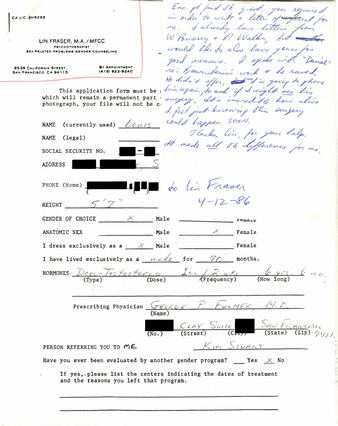 CA LIC
LIN FRASER, M.A./MFCC
PSYCHOTHERAPIST
SEX RELATED PROBLEMS-GENDER COUNSELING
2538 CALIFORNIA STREET
SAN FRANCISCO, CA 94115
BY APPOINTMENT
(415) 922-9240
in order to write a letter of
for me. I already have letters from
W. Pomeroy + P. Walker, but
would like to also have yours for
good measure. I spoke with
work + he raved,
surgery. It's incredible how alive
I feel just knowing this surgery
could happen soon.
Thanks Lin, for your help.
It made all the difference for me.
to Lin Fraser
4-12-86
This application form must be
which will remain a permanent part
photograph, your file will not be
NAME (currently used) Louis
NAME (legal)
SOCIAL SECURITY NO.
ADDRESS S
PHONE (Home)
HEIGHT 5'7"
GENDER OF CHOICE X Male Female
ANATOMIC SEX Male X Female
I dress exclusively as a X Male Female
I have lived exclusively as a male for 70 months.
HORMONES Depo-Testosterone 1cc / 2 wks 6 yrs. 6 mo.
(Type) (Dose) (Frequency) (How long)
Prescribing Physician George F. Fulmer M.D.
(Name)
Clay Suite San Francisco
(No.) (Street) (City) (State) (Zip)
PERSON REFERRING YOU TO ME. Kim Stuart
Have you ever been evaluated by another gender program? Yes X No
If yes, please list the centers indicating the dates of treatment
and the reasons you left that program.